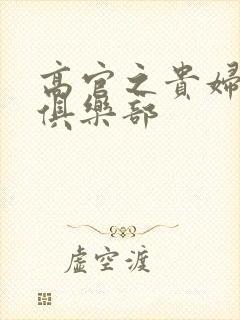 高官之貴婦
俱樂部
虛空渡